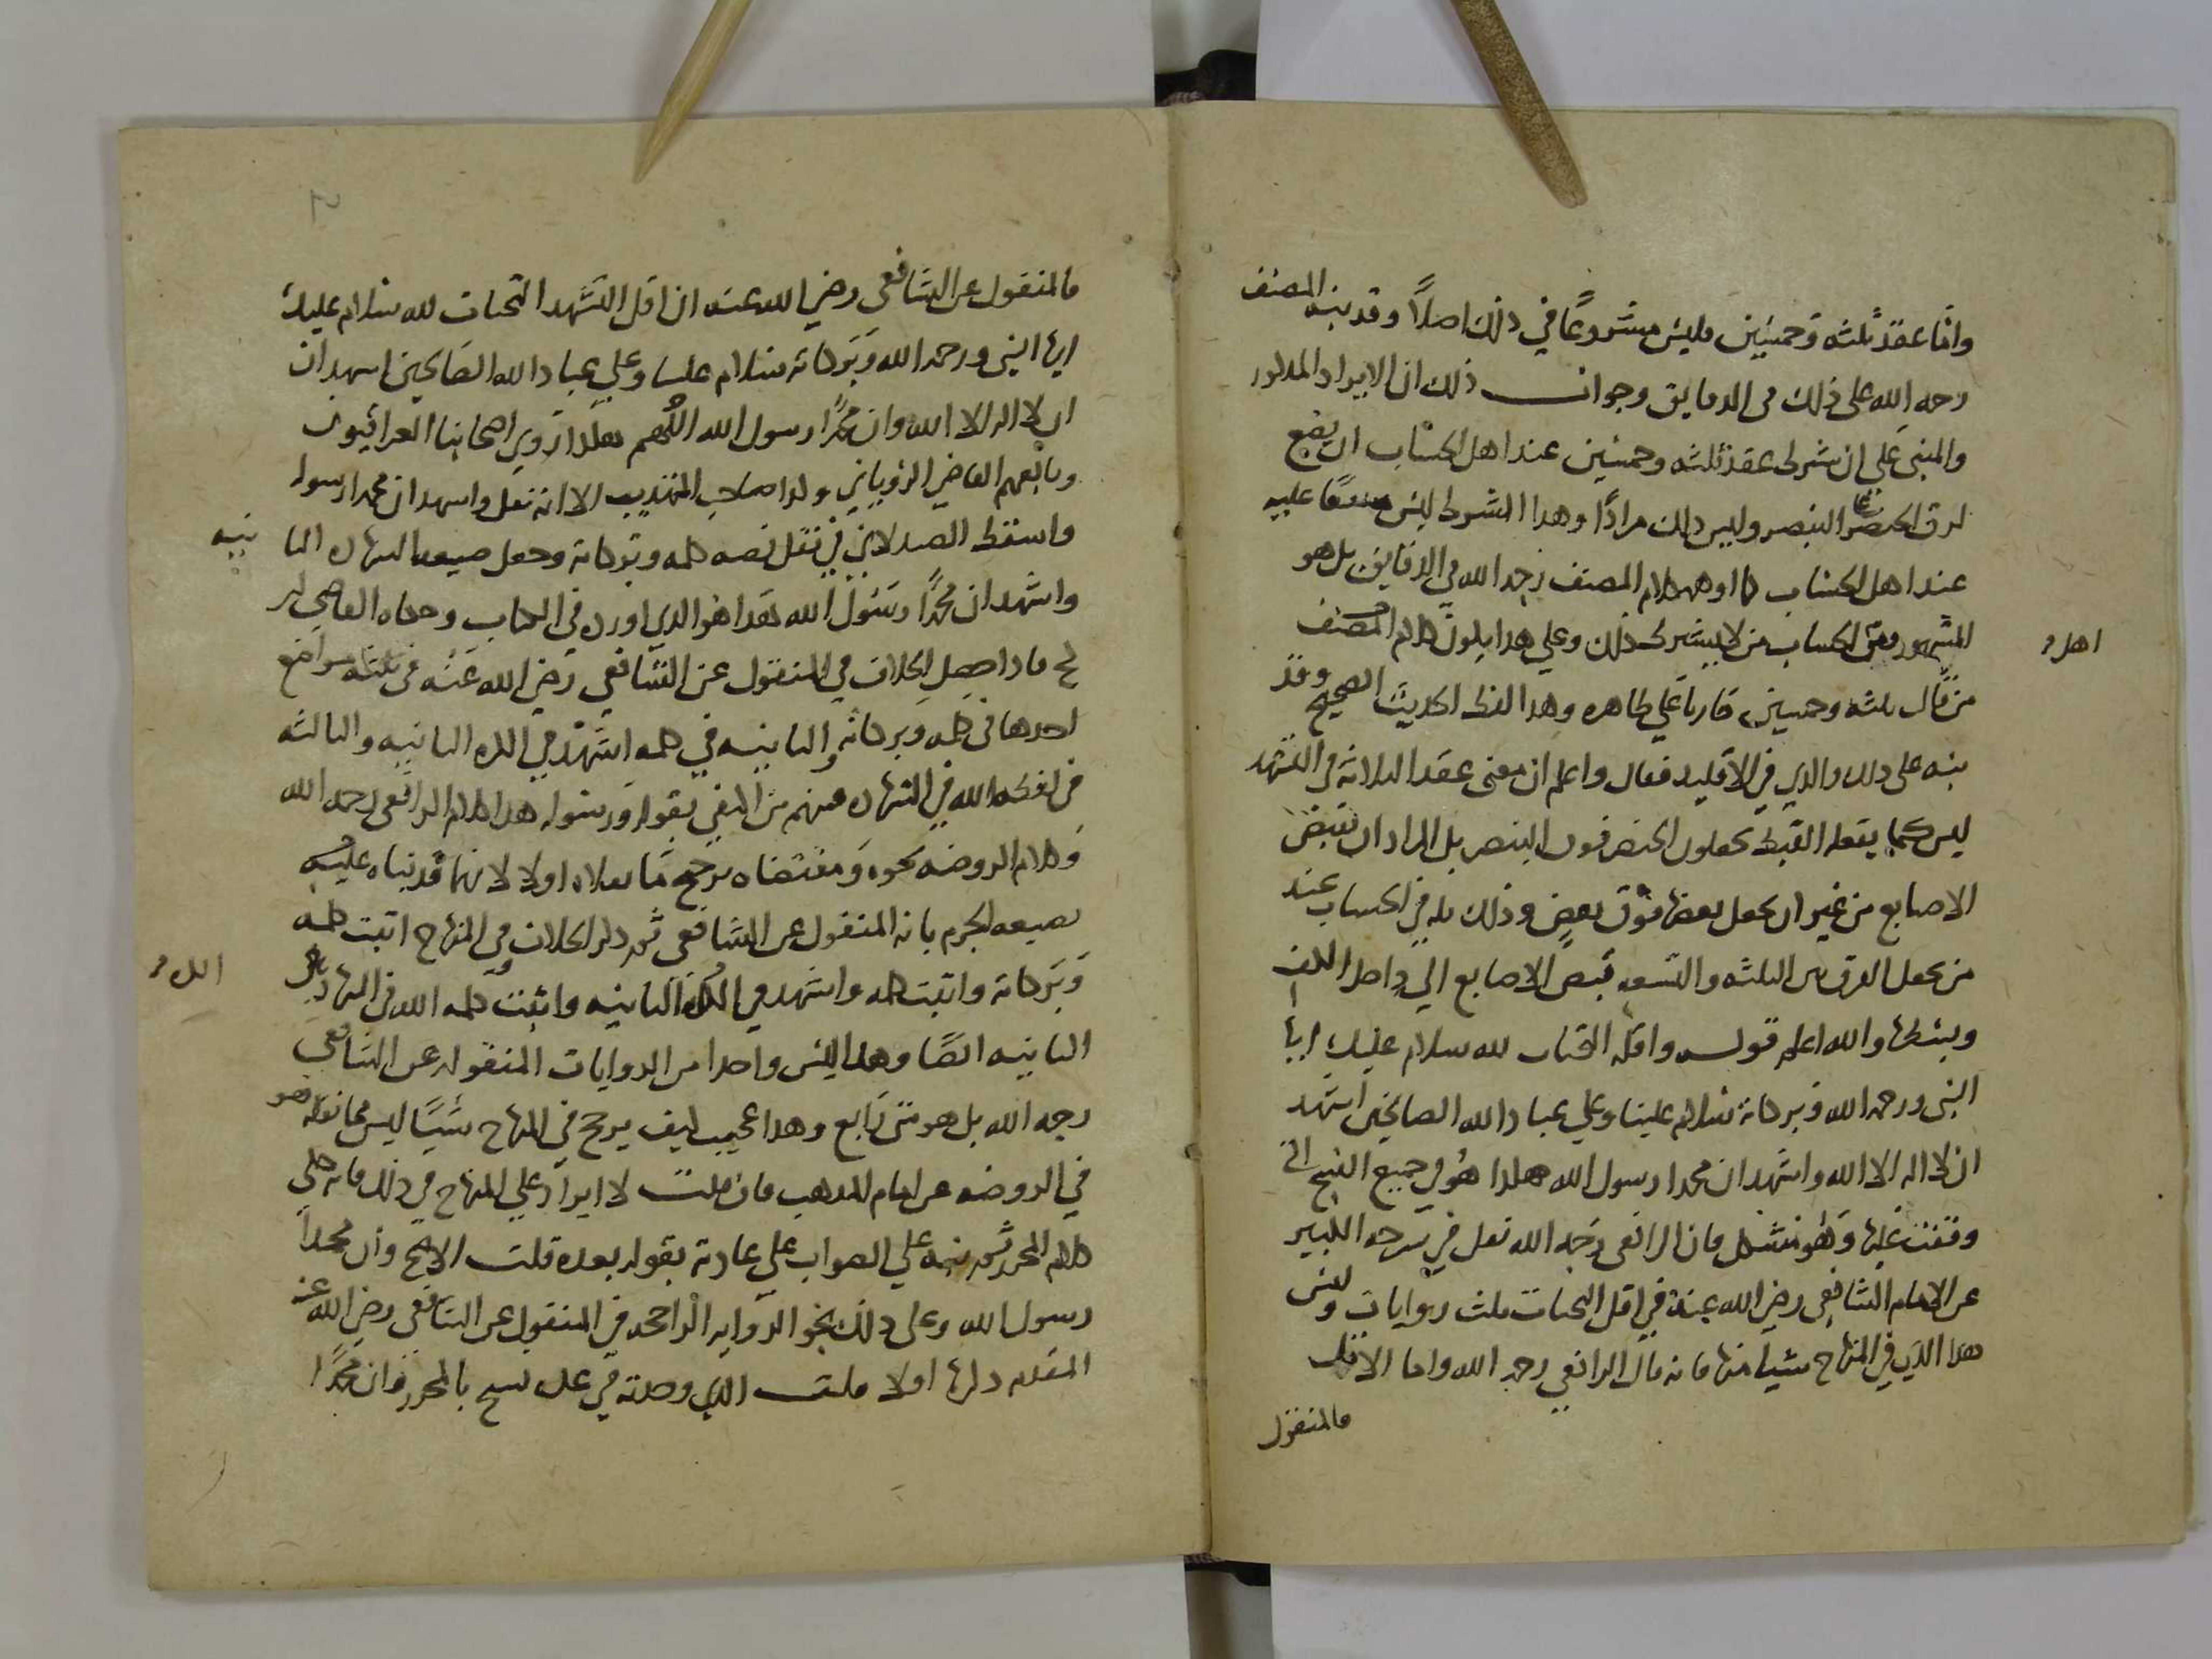 واما عقد ثلثه وخمسين فليس مشروعا في ذلك اصلاً وقد نبه المصنف
رحمه الله على ذلك في الدقايق وجواب ذلك ان الايراد المذكور
والمبنى على ان شرط عقد ثلثه وخمسين عند اهل الحساب ان يضع
طرف الخنصر على البنصر وليس ذلك مرادًا وهذا الشرط ليس متفقا عليه
عند اهل الحساب كما اوهمه كلام المصنف رحمه الله في الدقايق بل هو
المشهور ومن اهل الحساب من لا يشترط ذلك وعلى هذا يكون كلام المصنف
من قال ثلثه وخمسين جاريا على ظاهره وهذا لفظ الحديث الصحيح وقد
نبه على ذلك والذي في الاقليد فقال واعلم ان معنى عقد الثلاثة في التشهد
ليس كما يفعله القبط يجعلون الخنصر فوق البنصر بل المراد ان تقبض
الاصابع من غير ان يجعل بعضها فوق بعض وذلك ثلثه في الحساب عند
من يجعل الفرق بين الثلثه والتسعه قبض الاصابع الي داخل الكف
وبسطها والله اعلم قوله واقله التحيات لله سلام عليك ايها
النبي ورحمه الله وبركاته سلام علينا وعلي عباد الله الصالحين اشهد
ان لا اله الا الله واشهد ان محمدا رسول الله هكذا هو في جميع النسخ التي
وقفت عليها وهو مشكل فان الرافعي رحمه الله نقل في شرحه الكبير
عن الامام الشافعي رضي الله عنه في اقل التحيات ثلث روايات وليس
هذا الذي في المنهاج شيا منها فانه قال الرافعي رحمه الله واما الاقل
فالمنقول
فالمنقول عن الشافعي رضي الله عنه ان اقل التشهد التحيات لله سلام عليك
ايها النبي ورحمه الله وبركاته سلام علينا وعلي عباد الله الصالحين اشهد ان
ان لا اله الا الله وان محمدًا رسول الله اللهم هكذا روي اصحابنا العراقيون
وتابعهم القاضي الروياني وكذا صاحب التهذيب الا انه نقل واشهد ان محمدا رسوله
واسقط الصيدلاني في نقل نصه كلمه وبركاته وجعل صيغه الشهاده الثانيه
واشهد ان محمدًا رسول الله هذا هو الذي اورده في الكتاب وحكاه القاضي ابن
كج فاذا حصل الخلاف في المنقول عن الشافعي رضي الله عنه في ثلثه مواضع
احدها في كلمه وبركاته والثانيه في كلمه اشهد في الكره الثانيه والثالثه
في لفظه الله في الشهاده فمنهم من اكتفي بقوله ورسوله هذا كلام الرافعي رحمه الله
وكلام الروضه نحوه ومقتضاه ترجيح ما نقلاه اولا لانهما قدماه عليه
بصيغه الجزم بانه المنقول عن الشافعي ثم ذكر الخلاف وفي المنهاج اثبت كلمه
وبركاته واثبت كلمه واشهد في الكره الثانيه واثبت كلمه الله في الشهاده
الثانيه ايضًا وهذا ليس واحدا من الروايات المنقوله عن الشافعي
رحمه الله بل هو شي رابع وهذا عجيب كيف يرجح في المنهاج شيًا ليس مما نقله هو
في الروضه عن امام المذهب فان قلت لا ايراد علي المنهاج في ذلك فانه حكي
كلام المحرر ثم نبه علي الصواب علي عادته بقوله بعده قلت الاصح وان محمدًا
رسول الله وعلى ذلك ينحو الروايه الراجحه في المنقول عن الشافعي رضي الله عنه
المقدم ذكرها اولا قلت الذي وجدته في عده نسخ بالمحرر وان محمدًا